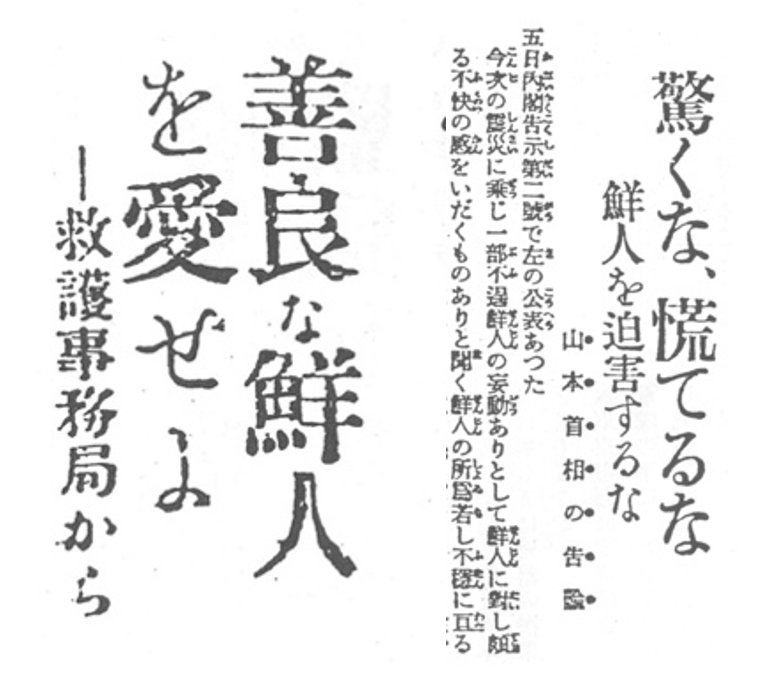 驚くな、慌てるな
鮮人を迫害するな
山本首相の告諭
五日内閣告示第二號で左の公表あつた
今次の震災に乗じ一部不逞鮮人の妄動ありとして鮮人に對し頗
る不快の感をいだくものありと聞く鮮人の所爲若し不穏に亘る
善良な鮮人
を愛せよ
―救護事務局から